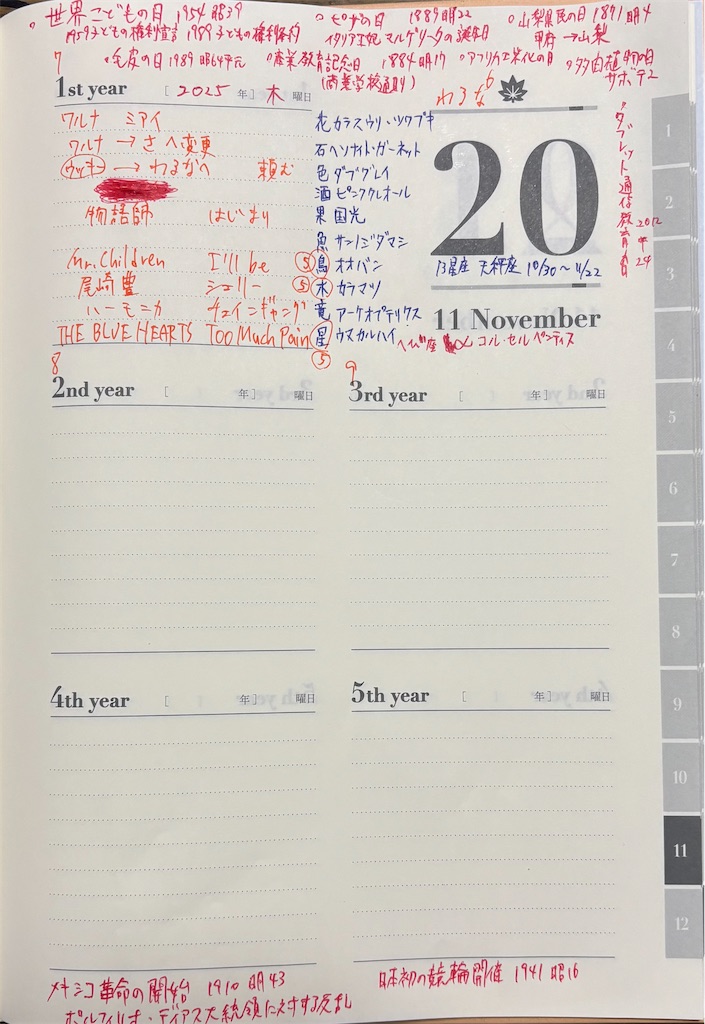 。世界こどもの日 1954 昭39
1959子どもの権利宣言 1989子どもの権利条約
。ピザの日 1889 明22
イタリア王妃 マルゲリータの誕生日
。山梨県民の日 1871 明4
甲府 → 山梨
7
。毛皮の日 1989 昭64平元
。産業教育記念日 1884 明17
(商業学校通則)
。アフリカ工業化の日
。多肉植物の日
サボテン
。タブレット通信教育の日
2012
平
24
1st year [ 2025 年] 木 曜日
ワルナ ミアイ
ワルナ → さへ変更
ウッキー → わるなへ 頼む
物語師 はじまり
Mr.Children I'll be ⑤
尾崎豊 シェリー ⑤
ハーモニカ チェインギャング
THE BLUE HEARTS Too Much Pain
⑤
花 カラスウリ・ツワブキ
石 ヘソナイト・ガーネット
色 ダブグレイ
酒 ピンククレオール
果 国光
魚 サンノジダマシ
鳥 オオバン
木 カラマツ
竜 アーケオプテリクス
星 ウヌカルハイ
へび座 α コル・セルペンティス
わるな6
20
13星座 天秤座 10/30〜11/22
11 November
8
2nd year [ 年] 曜日
9
3rd year [ 年] 曜日
4th year [ 年] 曜日
5th year [ 年] 曜日
メキシコ革命の開始 1910 明43
ポルフィリオ・ディアス大統領に対する反乱
日本初の競輪開催 1941 昭16
1
2
3
4
5
6
7
8
9
10
11
12